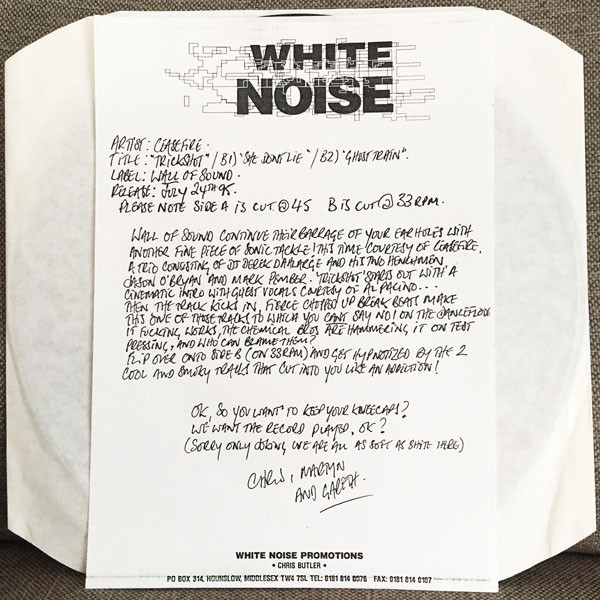 WHITE
NOISE
ARTIST: CEASEFIRE.
TITLE: "TRICKSHOT" / B1) 'SHE DONT LIE' / B2) 'GHOST TRAIN'.
LABEL: WALL OF SOUND.
RELEASE: JULY 24TH 95.
PLEASE NOTE SIDE A IS CUT @ 45 B IS CUT @ 33 RPM.
WALL OF SOUND CONTINUE THEIR BARRAGE OF YOUR EARHOLES WITH
ANOTHER FINE PIECE OF SONIC TACKLE! THIS TIME COURTESY OF CEASEFIRE,
A TRIO CONSISTING OF DJ DEREK DAHLARGE AND HIS TWO HENCHMEN
JASON O'BRYAN AND MARK PEMBER. 'TRICKSHOT' STARTS OUT WITH A
CINEMATIC INTRO WITH GUEST VOCALS COURTESY OF AL PACINO...
THEN THE TRACK KICKS IN, FIERCE CHOPPED UP BREAK BEATS MAKE
THIS ONE OF THOSE TRACKS TO WHICH YOU CAN'T SAY NO! ON THE DANCEFLOOR
IT FUCKING WORKS, THE CHEMICAL BROS ARE HAMMERING IT ON TEST
PRESSING, AND WHO CAN BLAME THEM?
FLIP OVER ONTO SIDE B (ON 33RPM) AND GET HYPNOTIZED BY THE 2
COOL AND SMOKY TRACKS THAT CUT INTO YOU LIKE AN ADDICTION!
OK, SO YOU WANT TO KEEP YOUR KNEECAPS?
WE WANT THE RECORD PLAYED, OK?
(SORRY ONLY JOKING, WE ARE ALL AS SOFT AS SHITE HERE)
CHRIS, MARTYN
AND GARETH.
WHITE NOISE PROMOTIONS
• CHRIS BUTLER •
PO BOX 314, HOUNSLOW, MIDDLESEX TW4 7SL TEL: 0181 814 0076 FAX: 0181 814 0107